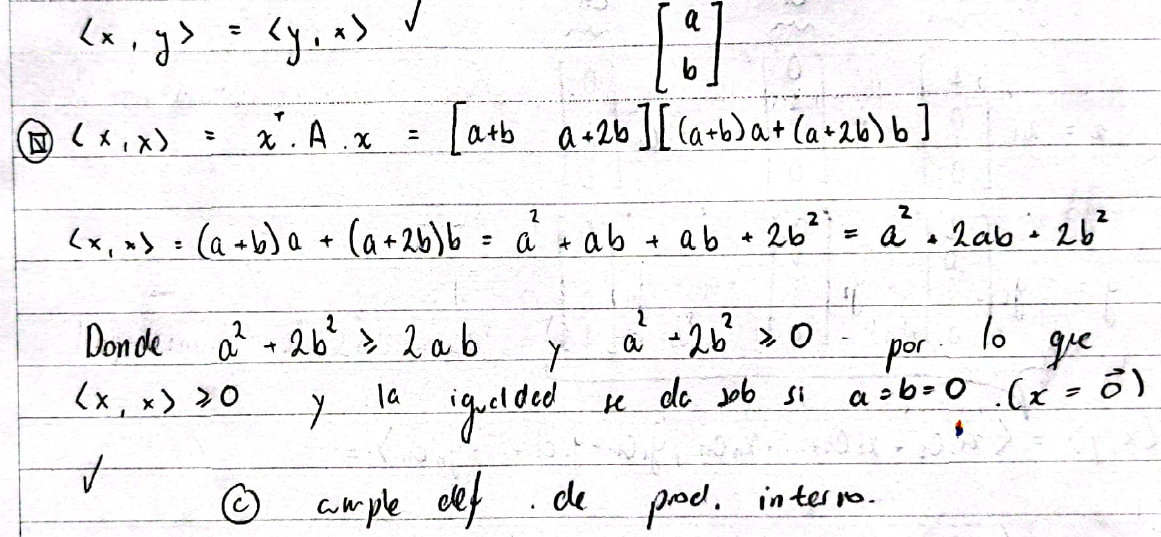 <x, y> = <y, x> ✓ [a b]
Ⓝ <x, x> = xᵀ. A . x = [a+b a+2b][(a+b)a+(a+2b)b]
<x, x> = (a+b)a + (a+2b)b = a² + ab + ab + 2b² = a² + 2ab + 2b²
Donde a² + 2b² ≥ 2ab y a² + 2b² ≥ 0 por lo que
<x, x> ≥ 0 y la igualdad se da sob si a=b=0 .(x = 0⃗)
✓ Ⓒ cumple def. de prod. interno.